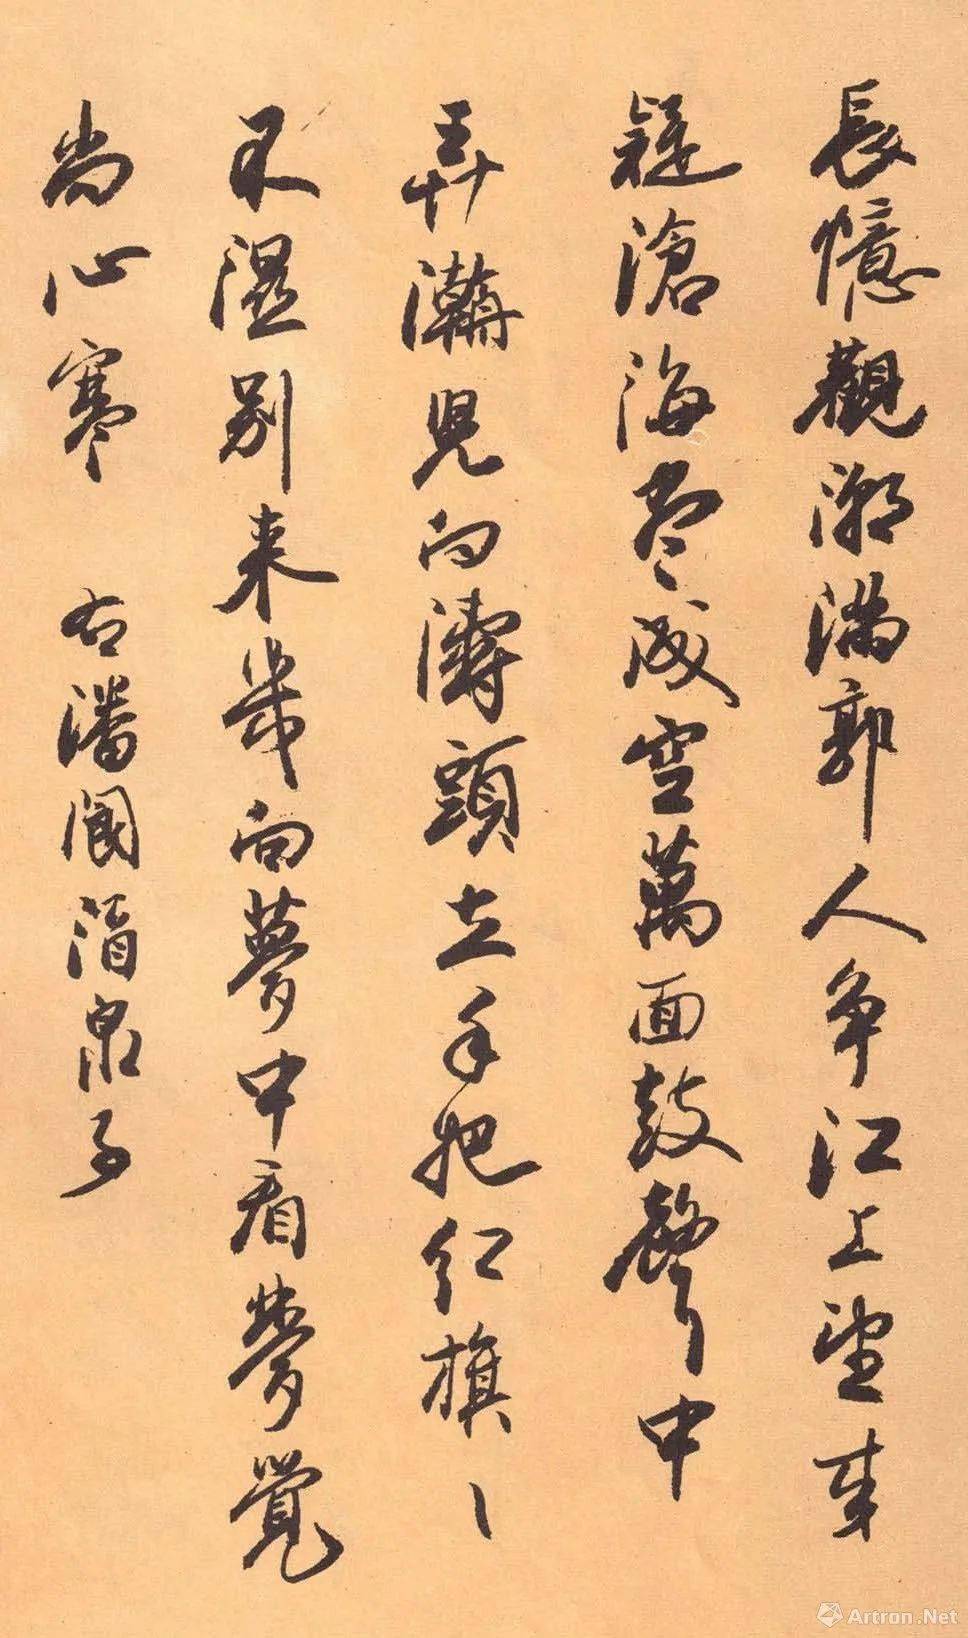 長憶觀潮滿郭人争江上望来
疑滄海盡成空萬面鼓聲中
弄潮兒向濤頭立手把紅旗〻
不濕别来幾向夢中看夢覺
尚心寒 右潘閬酒泉子
Artron.Net